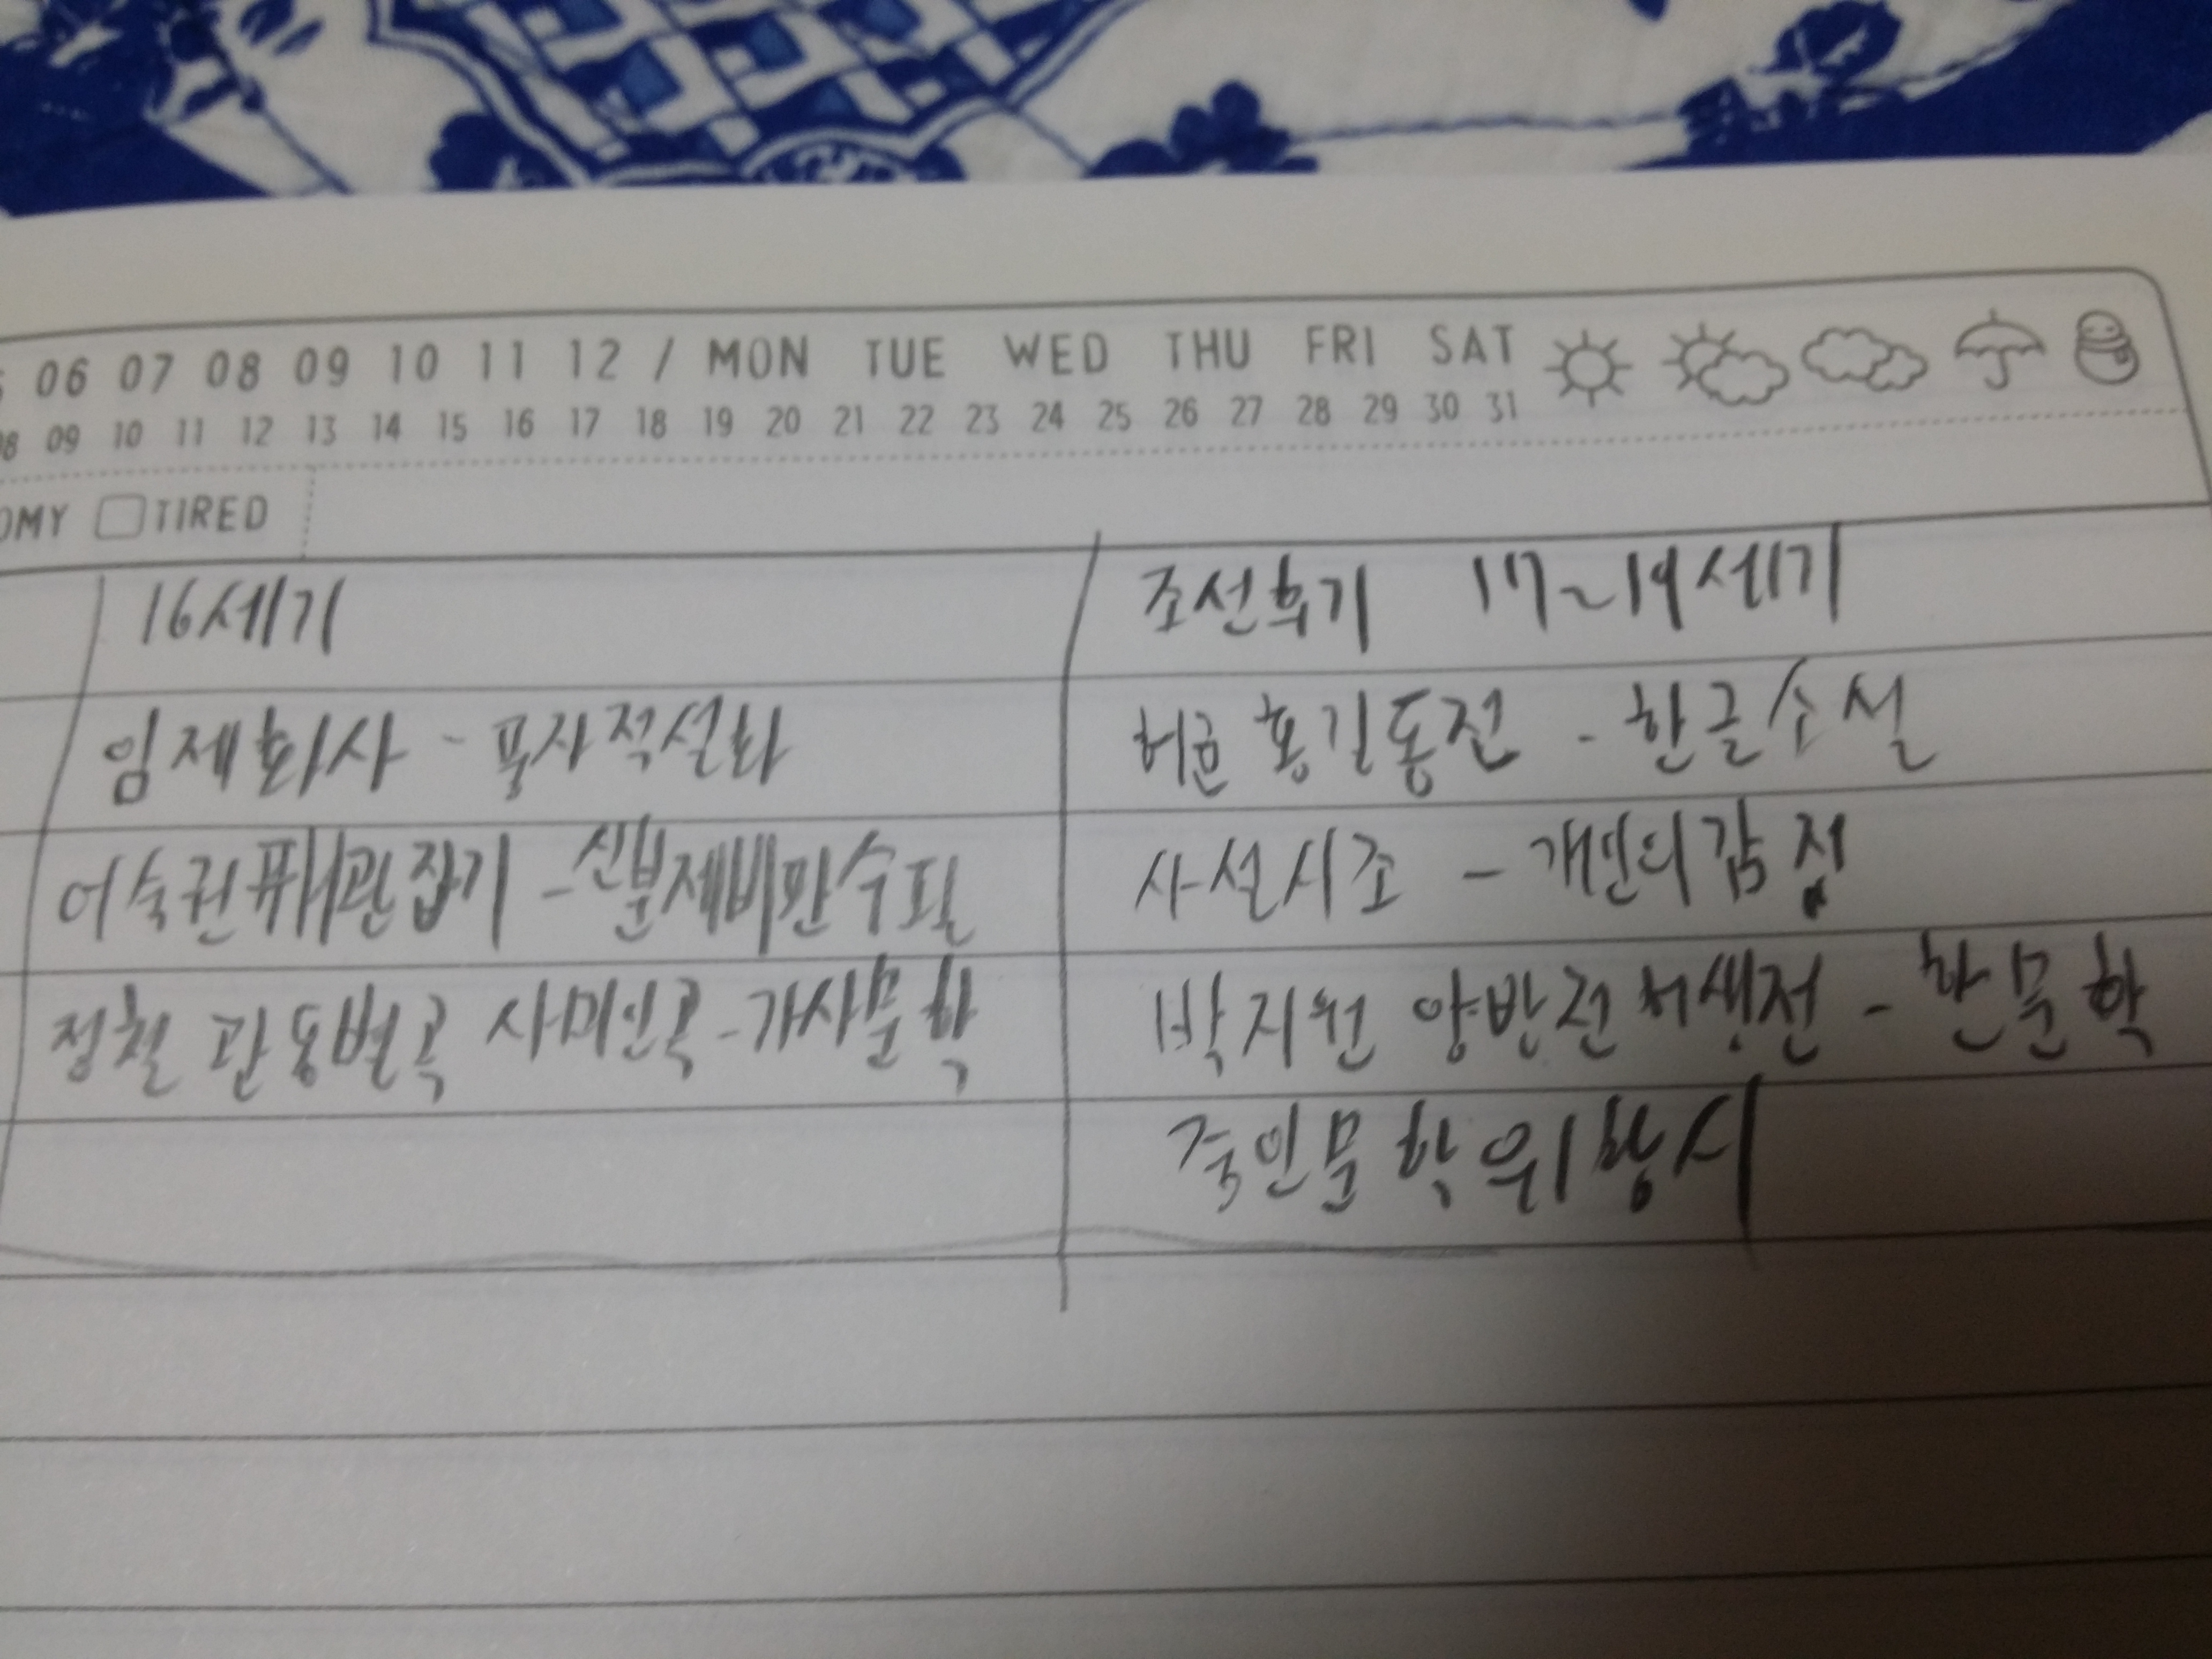 06 07 08 09 10 11 12 / MON TUE WED THU FRI SAT
08 09 10 11 12 13 14 15 16 17 18 19 20 21 22 23 24 25 26 27 28 29 30 31
OMY TIRED
16세기
임제화사 - 풍자적설화
어숙권패관잡기 - 신분제비판수필
정철 관동별곡 사미인곡 - 가사문학
조선후기 17~19세기
허균 홍길동전 - 한글소설
사설시조 - 개인의감정
박지원 양반전허생전 - 한문학
중인문학위항시